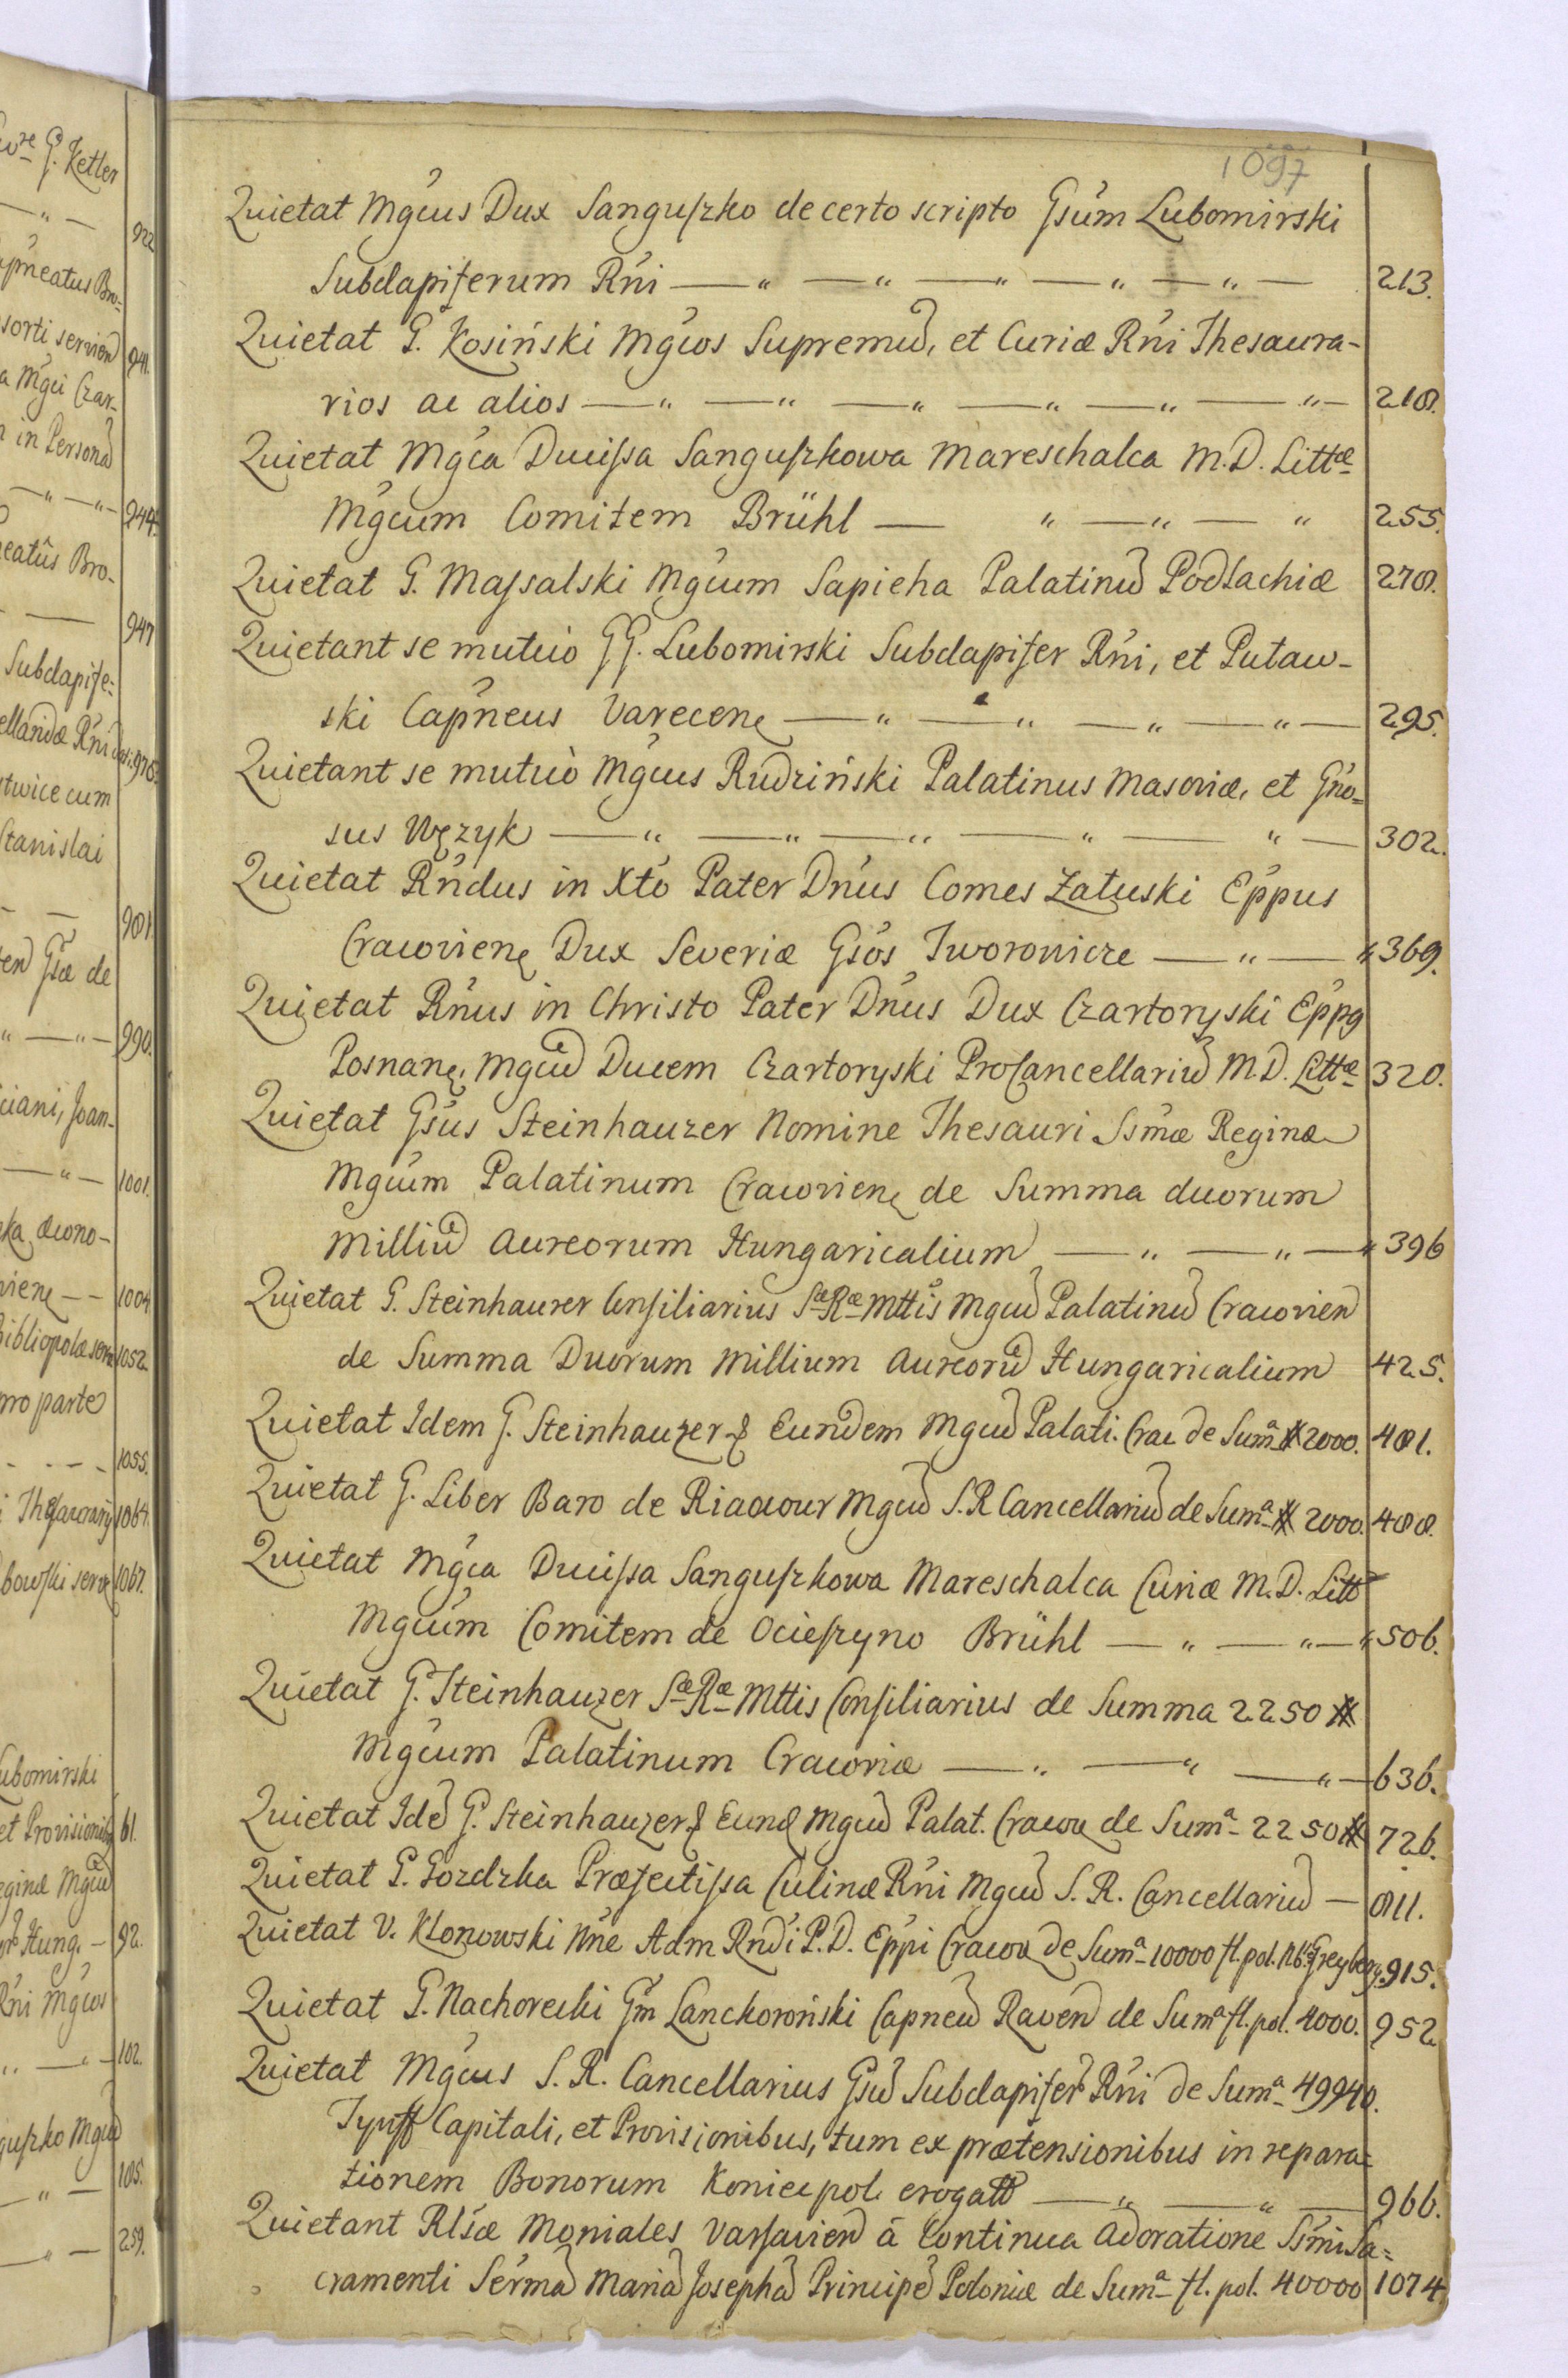 1097
Quietat Mgcus Dux Sanguszko de certo scripto Gsum Lubomirski
Subdapiferum Rni — " — " — " — " — " — 213.
Quietat G. Kosiński Mgcos Supremū, et Curiæ Rni Thesaura-
rios ac alios — " — " — " — " — " — " — 218.
Quietat Mgca Ducissa Sanguszkowa Mareschalca M.D. Littæ
Mgcum Comitem Brühl — " — " — " 255.
Quietat G. Massalski Mgcum Sapieha Palatinū Podlachiæ 278.
Quietant se mutuò GG. Lubomirski Subdapifer Rni, et Putaw-
ski Capneus Varecen — " — " — " — " — 295.
Quietant se mutuò Mgcus Rudziński Palatinus Masoviæ, et Gno=
sus Wężyk — " — " — " — " — " — 302.
Quietat Rndus in Xto Pater Dnus Comes Załuski Eppus
Cracovien Dux Severiæ Gsos Jworowicze — " — " 369.
Quietat Rnus in Christo Pater Dnus Dux Czartoryski Epps
Posnan. Mgcū Ducem Czartoryski ProCancellariū M.D. Littæ 320.
Quietat Gsus Steinhauzer Nomine Thesauri Ssmæ Reginæ
Mgcum Palatinum Cracovien de Summa duorum
Milliū Aureorum Hungaricalium — " — " — " 396
Quietat G. Steinhauzer Consiliarius Sæ Ræ Mttis Mgcū Palatinū Cracovien
de Summa Duorum Millium Aureorū Hungaricalium 425.
Quietat Idem G. Steinhauzer Eundem Mgcū Palati. Crac de Suma 2000. 481.
Quietat G. Liber Baro de Riaucour Mgcū S.R Cancellariū de Suma 2000. 488.
Quietat Mgca Ducissa Sanguszkowa Mareschalca Curiæ M.D. Litt
Mgcum Comitem de Ocieszyno Brühl — " — " — " 506.
Quietat G. Steinhauzer Sæ Ræ Mttis Consiliarius de Summa 2250
Mgcum Palatinum Cracoviæ — " — " — " — 636.
Quietat Idē G. Steinhauzer Eund Mgcū Palat. Cracov de Suma 2250 726.
Quietat G. Gozdzka Præfectissa Culinæ Rni Mgcū S. R. Cancellariū — 811.
Quietat V. Klonowski Nne Adm Rndi P.D. Eppi Cracov de Suma 10000 fl. pol. 915.
Quietat G. Nachorecki Gm Lanckoroński Capneū Raven de Suma fl. pol. 4000. 952
Quietat Mgcus S. R. Cancellarius Gsū Subdapifer Rni de Suma 49940.
Tynff Capitali, et Provisionibus, tum ex prætensionibus in repara=
tionem Bonorum Koniecpol. erogatt — " — " — 966.
Quietant Rlsæ Moniales Varsavien à Continua Adoratione Ssmi Sa=
cramenti Sermā Mariā Josephā Principē Poloniæ de Suma fl. pol. 40000 1074.